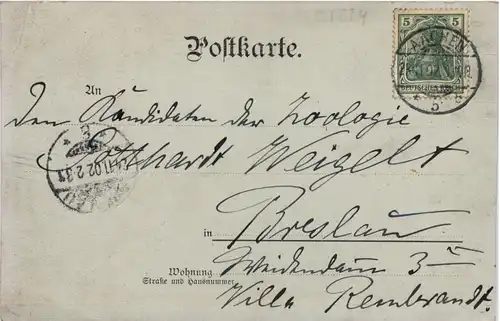 5 5
DEUTSCHES REICH
AACHEN
Postkarte.
An
den Kandidaten der Zoologie
Gotthardt Weigelt
.11.02.2
in Breslau
Wohnung
Straße und Hausnummer
Weidendamm 3
Villa Rembrandt.